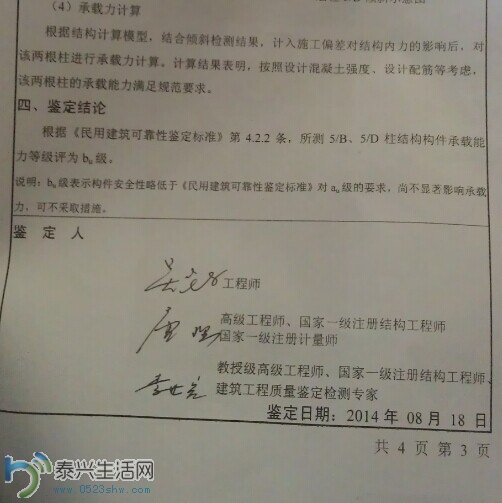 （4）承载力计算
根据结构计算模型，结合倾斜检测结果，计入施工偏差对结构内力的影响后，对
该两根柱进行承载力计算。计算结果表明，按照设计混凝土强度、设计配筋等考虑，
该两根柱的承载能力满足规范要求。
四、鉴定结论
根据《民用建筑可靠性鉴定标准》第 4.2.2 条，所测 5/B、5/D 柱结构构件承载能
力等级评为 bu 级。
说明：bu 级表示构件安全性略低于《民用建筑可靠性鉴定标准》对 au 级的要求，尚不显著影响承载
力，可不采取措施。
鉴 定 人
工程师
高级工程师、国家一级注册结构工程师
国家一级注册计量师
教授级高级工程师、国家一级注册结构工程师、
建筑工程质量鉴定检测专家
鉴定日期：2014 年 08 月 18 日
共 4 页 第 3 页
泰兴生活网
www.0523shw.com